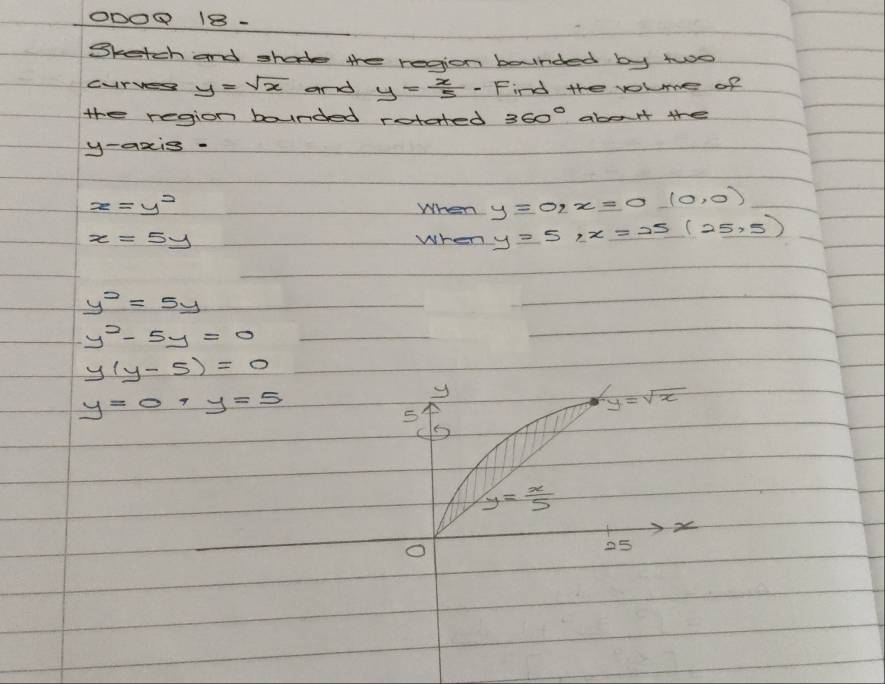 ODOQ 18.
Sketch and shade the region bounded by two
curves y = √x and y = x/5 . Find the volume of
the region bounded rotated 360° about the
y-axis.
x = y²
When y = 0, x = 0 (0,0)
x = 5y
When y = 5, x = 25 (25,5)
y² = 5y
y² - 5y = 0
y(y - 5) = 0
y = 0, y = 5
y
5
y = √x
y = x/5
x
O
25